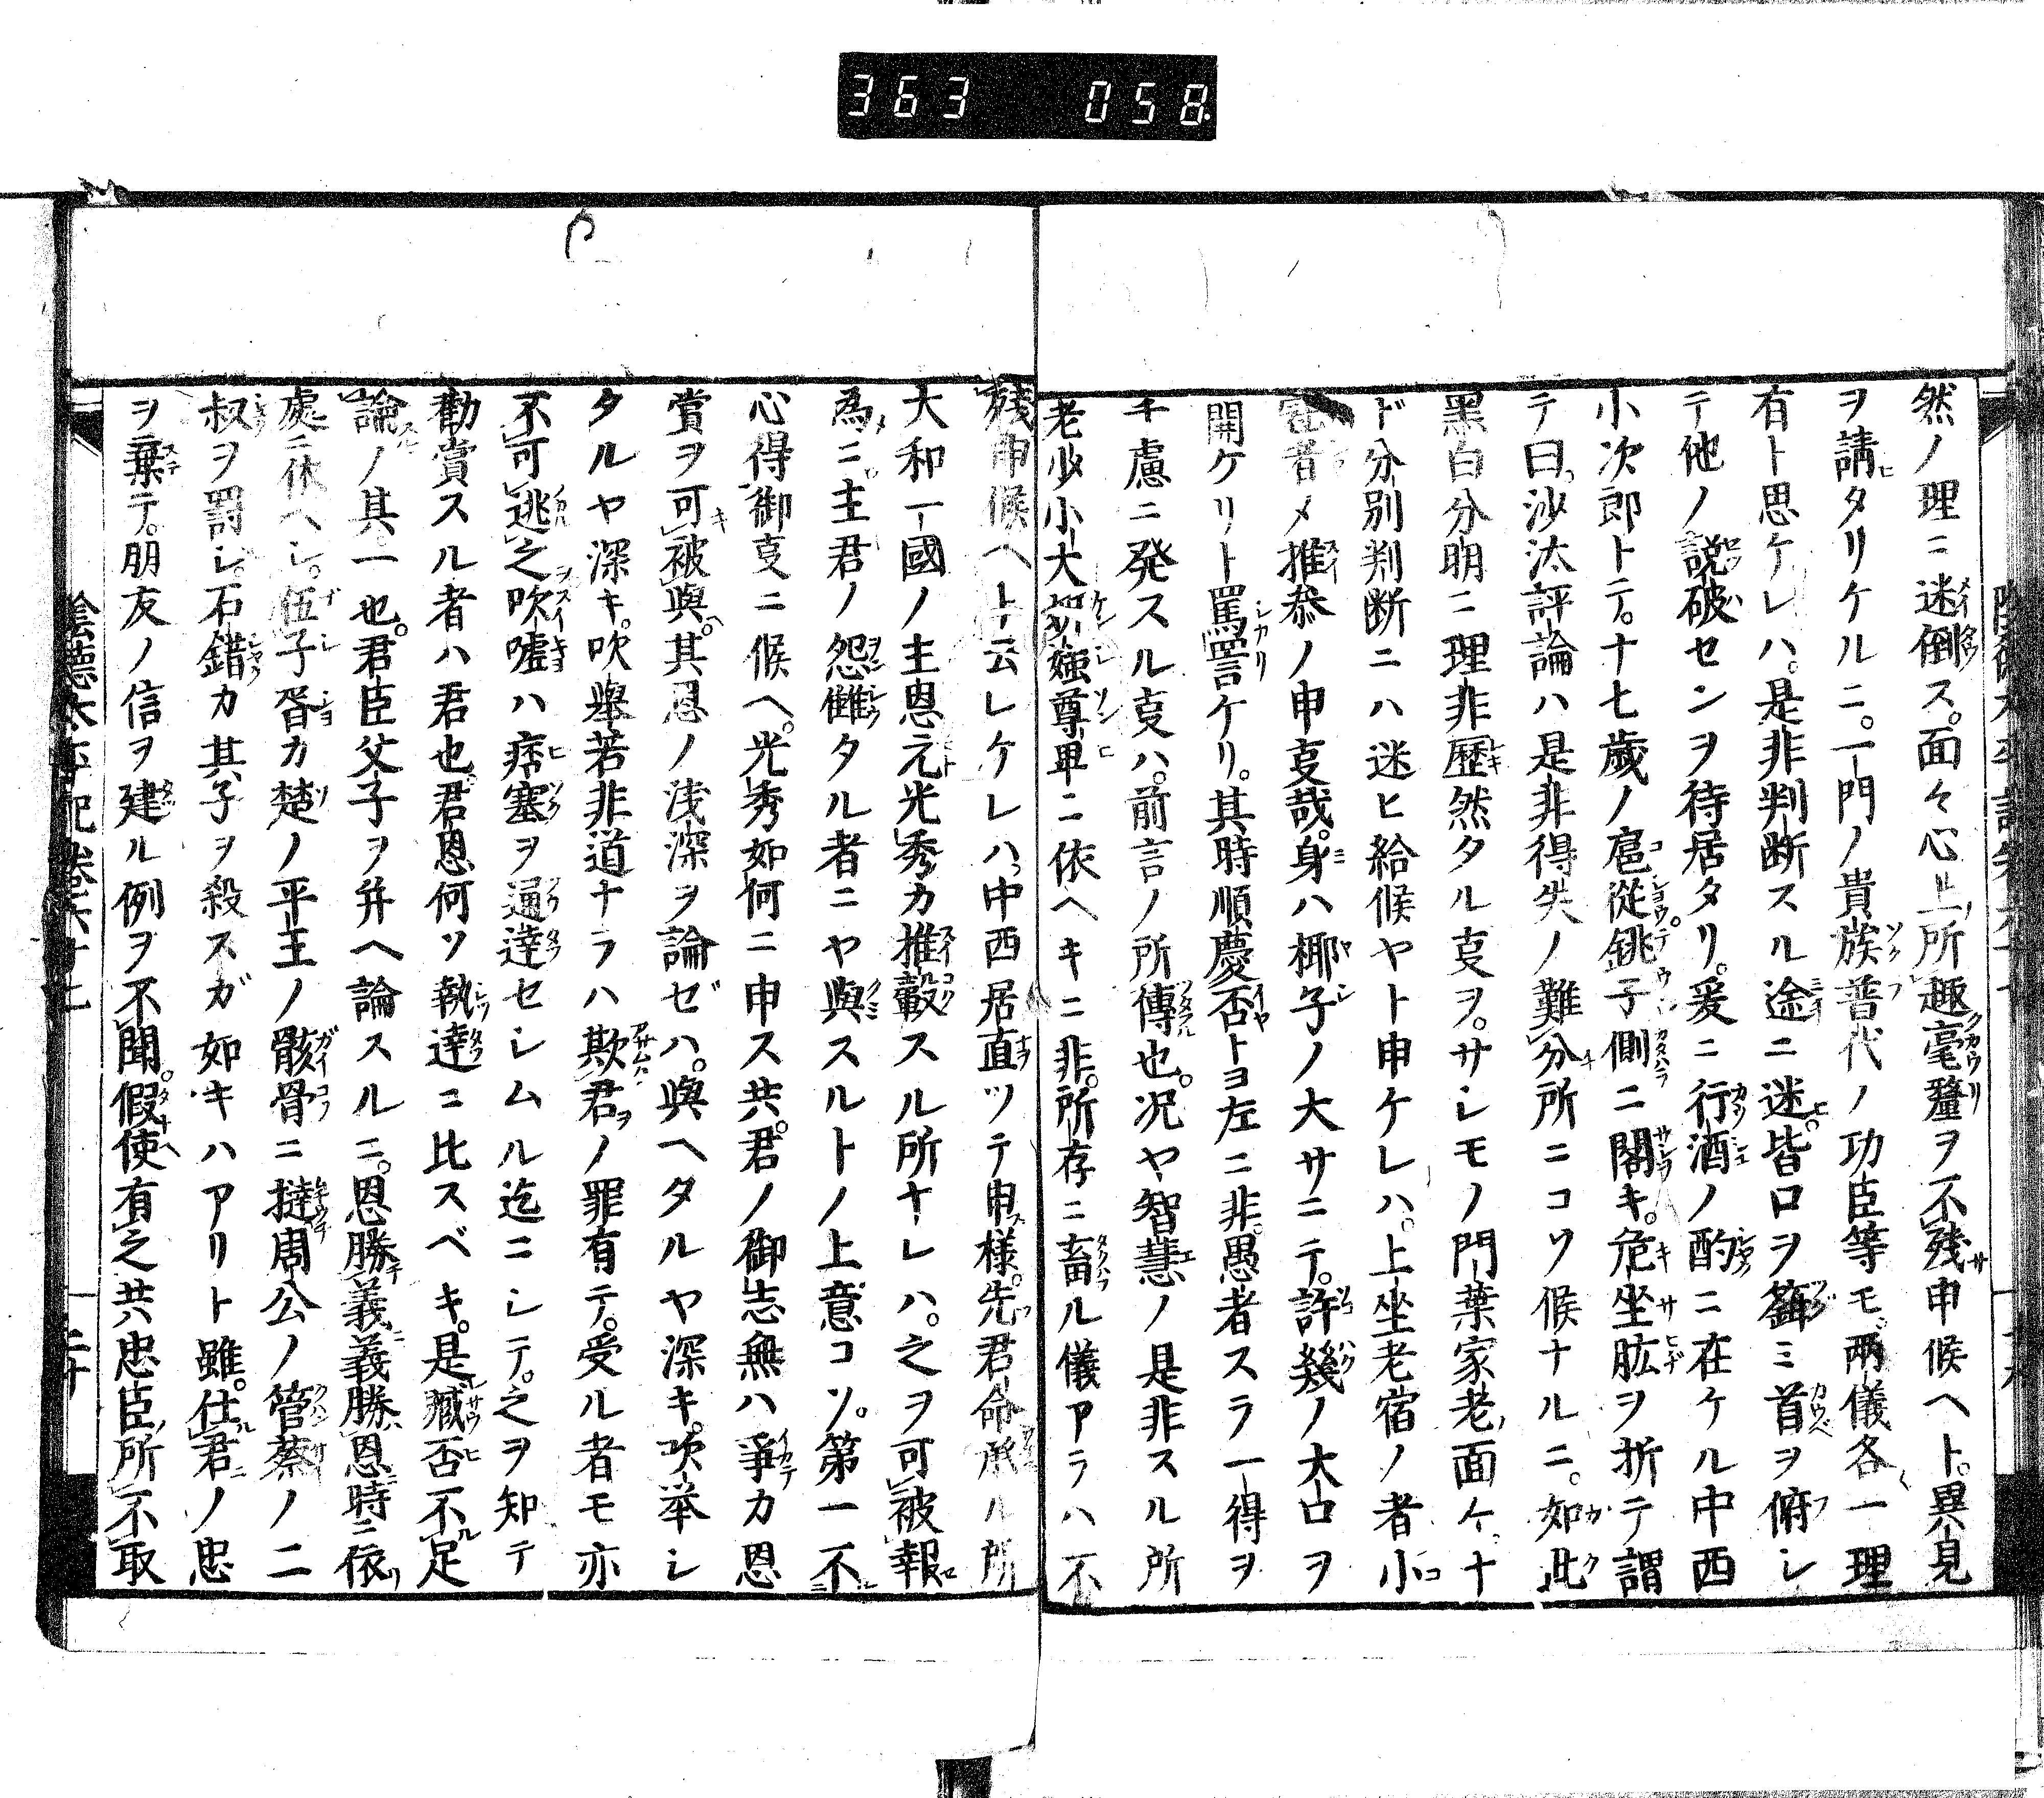 363 058
然ノ理ニ迷倒ス。面々心ノ所趣毫釐ヲ不殘申候ヘト。異見
ヲ請タリケルニ。一門ノ貴族普代ノ功臣等モ。兩儀各一理
有ト思ケレハ。是非判断スル途ニ迷ヒ。皆口ヲ鉗ミ首ヲ俯シ
テ他ノ說破センヲ待居タリ。爰ニ行酒ノ酌ニ在ケル中西
小次郎トテ。十七歲ノ扈從。銚子側ニ閣キ。危坐肱ヲ折テ謂
テ曰。沙汰評論ハ是非得失ノ難分所ニコソ候ナルニ。如此
黑白分明ニ理非歷然タル支ヲ。サシモノ門葉家老面ケ十
ド分別判断ニハ迷ヒ給候ヤト申ケレハ。上坐老宿ノ者小
者メ推叅ノ申支哉。身ハ椰子ノ大サニテ。許幾ノ大口ヲ
開ケリト罵詈ケリ。其時順慶否トヨ左ニ非。愚者スラ一得ヲ
千慮ニ発スル支ハ。前言ノ所傳也。况ヤ智慧ノ是非スル所
老少小大妍媸尊卑ニ依ヘキニ非。所存ニ畜ル儀アラハ不
殘申候ヘト云レケレハ。中西居直ツテ申樣。先君命承ル所
大和一國ノ主恩元光秀カ推轂スル所ナレハ。之ヲ可被報
為ニ。主君ノ怨讎タル者ニヤ與スルトノ上意コソ。第一不
心得御支ニ候ヘ。光秀如何ニ申ス共。君ノ御志無ハ爭カ恩
賞ヲ可被與。其恩ノ浅深ヲ論ゼハ。與ヘタルヤ深キ。吹举シ
タルヤ深キ。吹舉若非道ナラハ欺君ノ罪有テ。受ル者モ亦
不可逃之。吹嘘ハ痞塞ヲ通達セシムル迄ニシテ。之ヲ知テ
勸賞スル者ハ君也。君恩何ソ執達ニ比スベキ。是臧否不足
論ノ其一也。君臣父子ヲ并ヘ論スルニ。恩勝義義勝恩時ニ依
處ニ休ヘシ。伍子胥カ楚ノ平王ノ骸骨ニ撻周公ノ管蔡ノ二
叔ヲ罸シ。石錯カ其子ヲ殺スガ如キハアリト雖。仕君ノ忠
ヲ棄テ。朋友ノ信ヲ建ル例ヲ不聞。假使有之共忠臣所不取
陰德太平記卷六十七